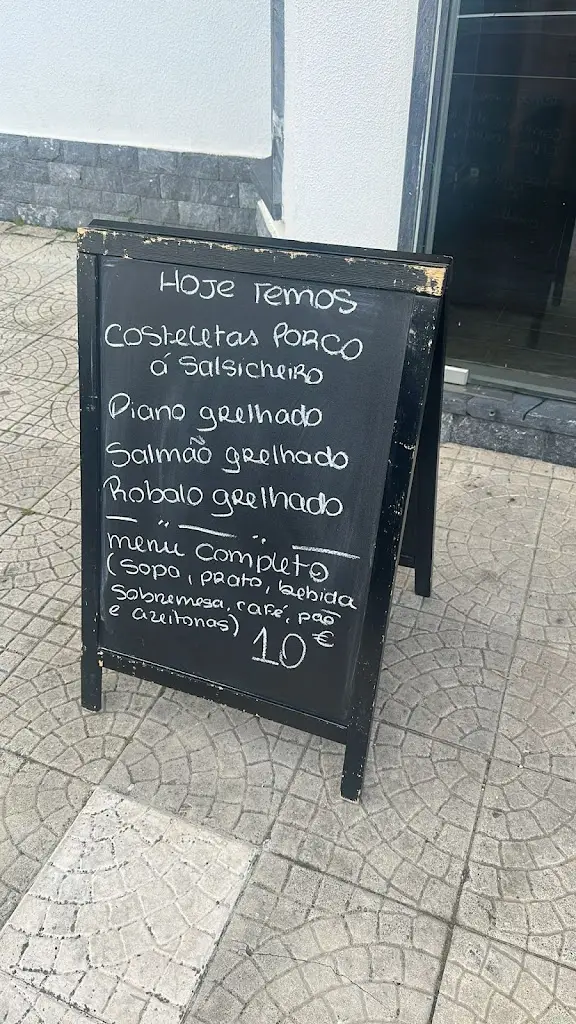 Hoje Temos
Costeletas Porco
á Salsicheiro
Piano grelhado
Salmão grelhado
Robalo grelhado
menu completo
(sopa, prato, bebida
sobremesa, café, pão
e azeitonas)
10€